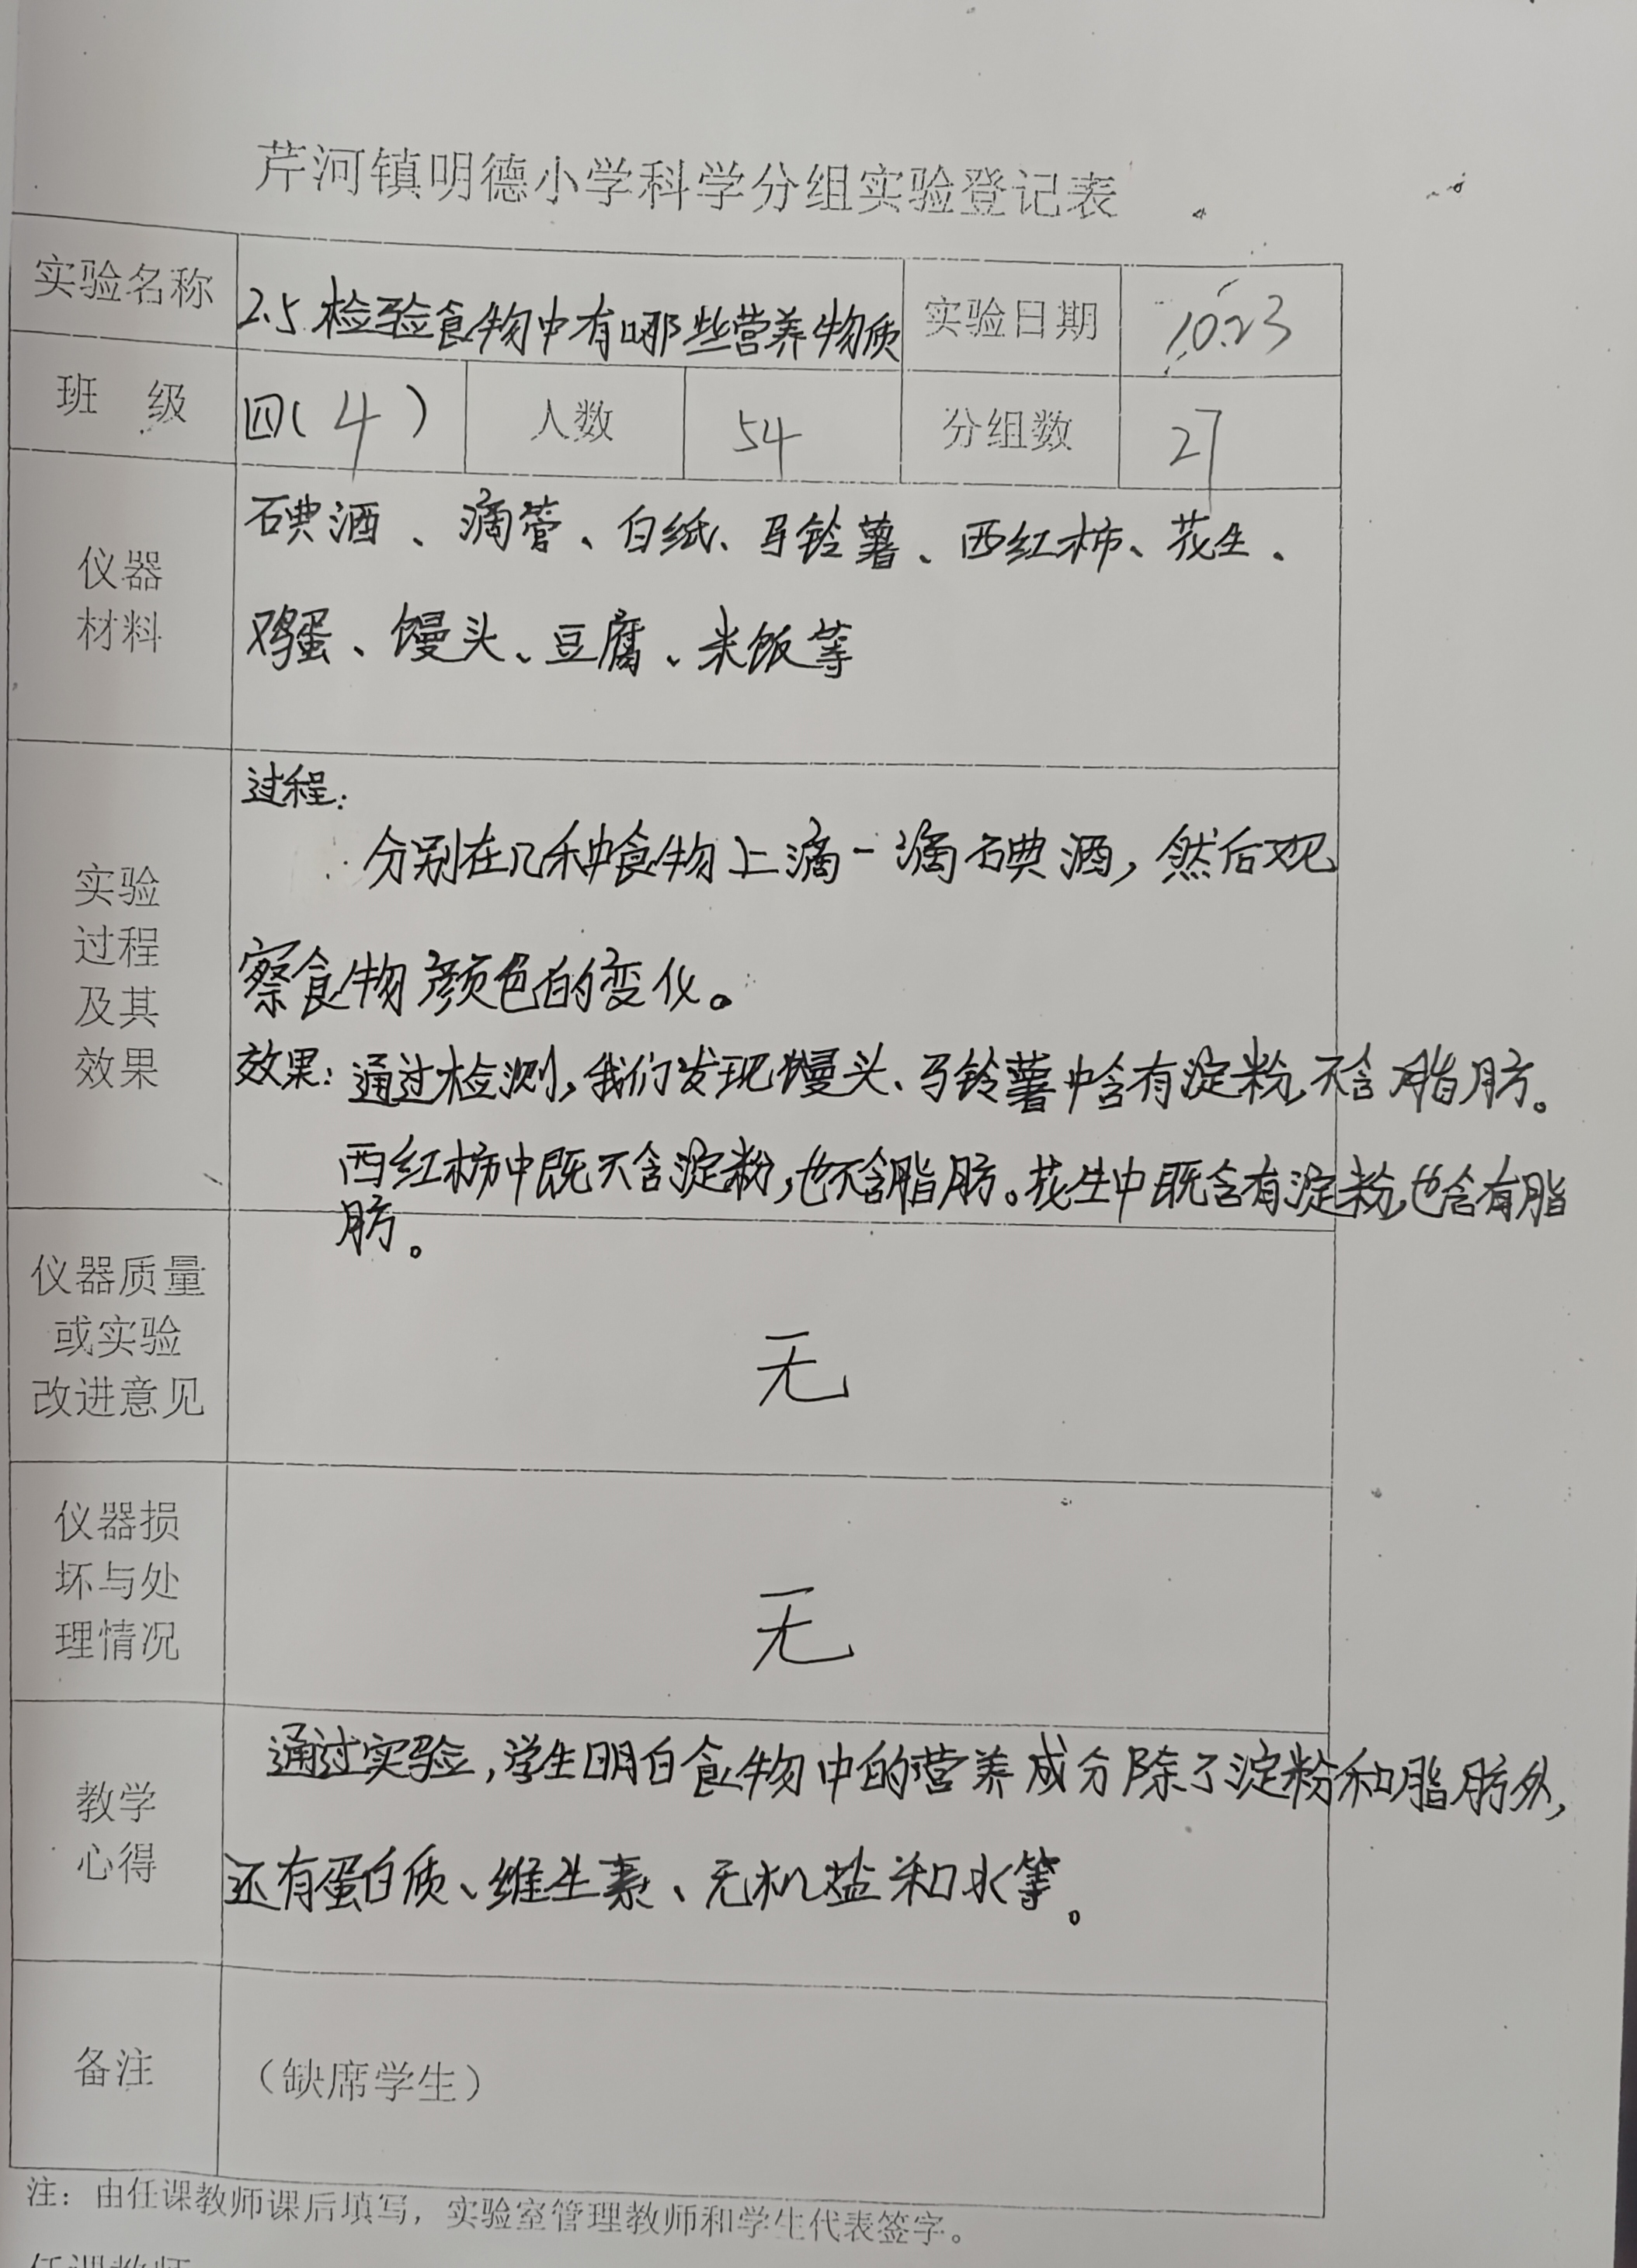 芹河镇明德小学科学分组实验登记表
实验名称 2.5 检验食物中有哪些营养物质 实验日期 10.23
班 级 四(4) 人数 54 分组数 27
仪器
材料
碘酒、滴管、白纸、马铃薯、西红柿、花生、
鸡蛋、馒头、豆腐、米饭等
实验
过程
及其
效果
过程:
分别在几种食物上滴一滴碘酒,然后观
察食物颜色的变化。
效果:通过检测,我们发现馒头、马铃薯中含有淀粉,不含脂肪。
西红柿中既不含淀粉,也不含脂肪。花生中既含有淀粉,也含有脂
肪。
仪器质量
或实验
改进意见
无
仪器损
坏与处
理情况
无
教学
心得
通过实验,学生明白食物中的营养成分除了淀粉和脂肪外,
还有蛋白质、维生素、无机盐和水等。
备注
(缺席学生)
注:由任课教师课后填写,实验室管理教师和学生代表签字。
任课教师